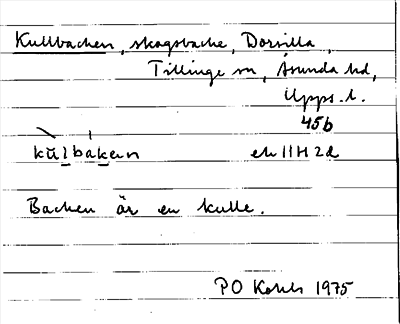 Kullbacken, skogsbacke, Dorsilla,
Tillinge sn, Åsunda hd,
Upps. l.
45b
kùlbákₑn ek 11H 2d
Backen är en kulle.
PO 1975